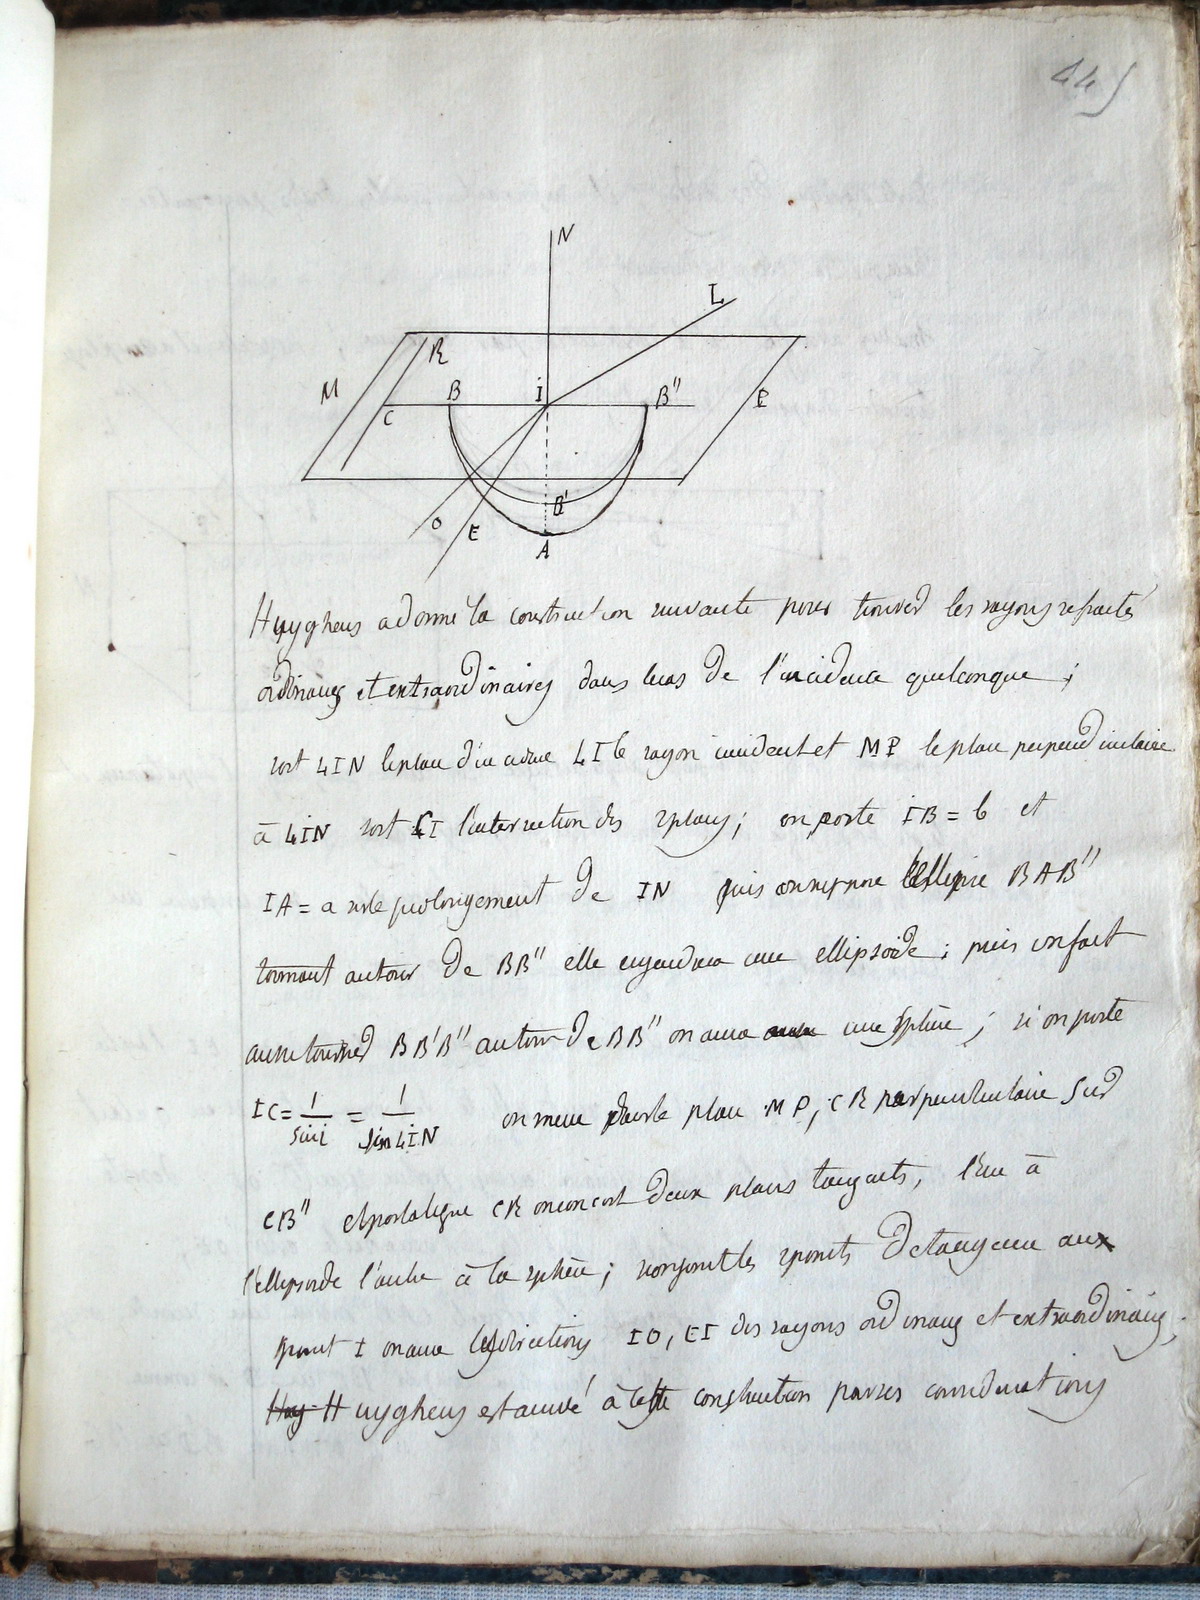 445
N
L
R
M
B
I
B"
P
C
O
E
B'
A
Huyghens a donné la construction suivante pour trouver les rayons refractés
ordinaires et extraordinaires dans le cas de l'incidence quelconque ;
soit LIN le plan d'incidence LI le rayon incident et MP le plan perpendiculaire
à LIN soit CI l'intersection des 2 plans ; on porte IB = b et
IA = a sur le prolongement de IN puis on suppose l'Ellipse BAB"
tournant autour de BB" elle engendrera une ellipsoïde ; puis on fait
aussi tourner BB'B" autour de BB" on aura une sphère ; si on porte
IC = 1/sin i = 1/sin LIN on mene dans le plan MP, CR perpendiculaire sur
CB" et par la ligne CR on conçoit deux plans tangents, l'un à
l'ellipsoide l'autre à la sphère ; si on joint les 2 points de tangence aux
point I on aura les directions IO, EI des rayons ordinaires et extraordinaires ;
Huy Huyghens est arrivé à cette construction par ses considerations